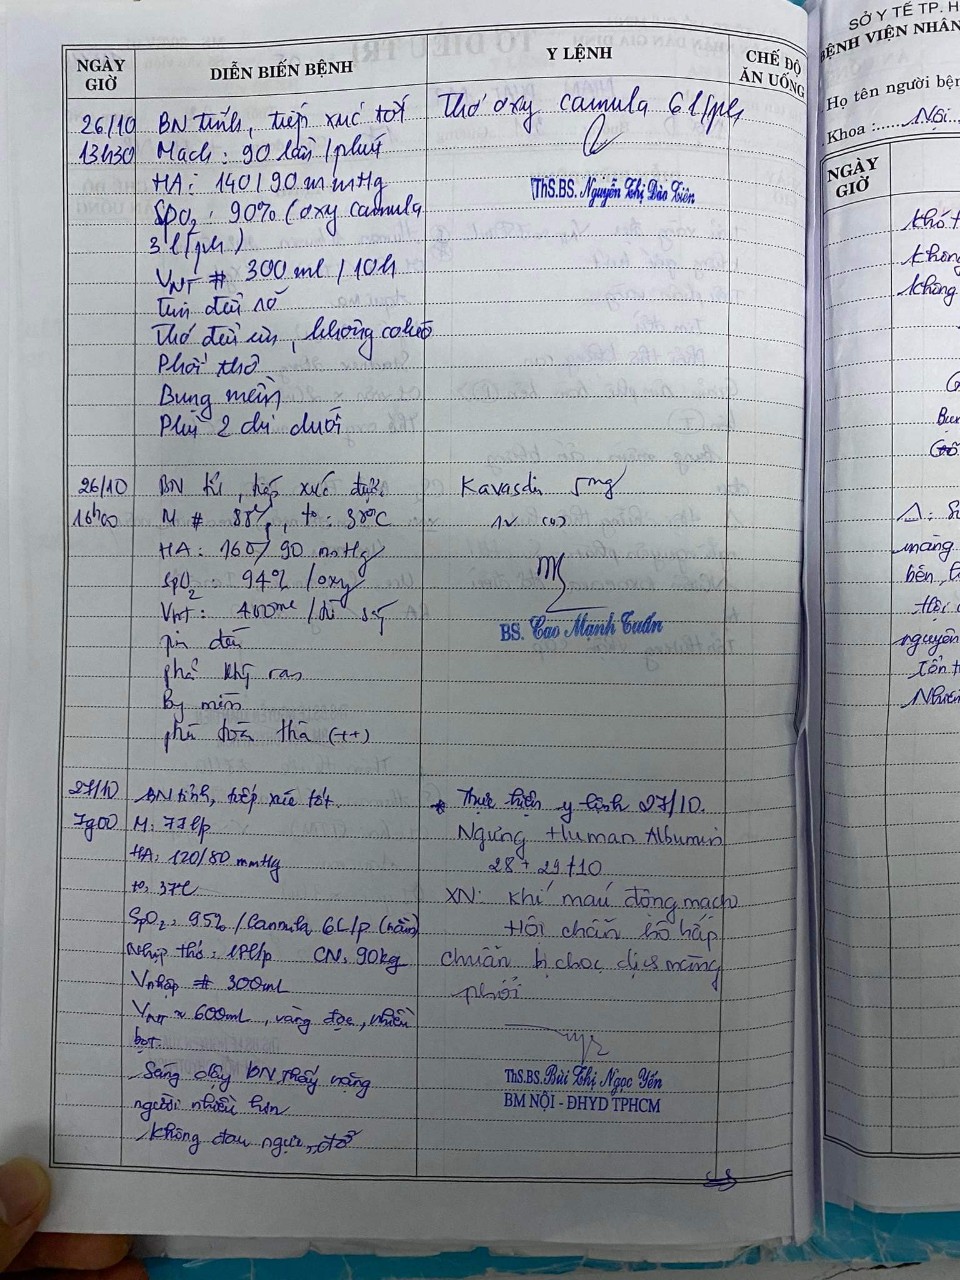 NGÀY GIỜ
DIỄN BIẾN BỆNH
Y LỆNH
CHẾ ĐỘ ĂN UỐNG
26/10
13h30
BN tỉnh, tiếp xúc tốt
Mạch: 90 lần/phút
HA: 140/90 mmHg
SpO2: 90% (oxy canula
3l/ph)
VNT # 300ml/10h
Tim đều rõ
Thở đều êm, không co kéo
Phổi thô
Bụng mềm
Phù 2 chi dưới
Thở oxy canula 6l/ph
ThS.BS. Nguyễn Thị Đào Tiên
26/10
16h00
BN tỉnh, tiếp xúc được
M # 88, t°: 38°C
HA: 160/90 mmHg
SpO2 94% /oxy
VNT: 400ml /
tim đều
phổi không ran
bụng mềm
phù toàn thân (++)
Kavasdin 5mg
1v (u)
BS. Cao Mạnh Tuấn
27/10
7g00
BN tỉnh, tiếp xúc tốt.
M: 77l/p
HA: 120/80 mmHg
t°: 37°C
SpO2: 95% /Cannula 6L/p (nằm)
Nhịp thở: l/p CN: 90kg
Vnhập # 300ml
VNT ≈ 600ml, vàng đục, nhiều
bọt.
Sáng dậy BN thấy nặng
người nhiều hơn
Không đau ngực, đỡ
* Thực hiện y lệnh 27/10.
Ngưng Human Albumin
28 + 29/10
XN: Khí máu động mạch
Hội chẩn hô hấp
chuẩn bị chọc dịch màng
phổi
ThS.BS. Bùi Thị Ngọc Yến
BM NỘI - ĐHYD TPHCM
SỞ Y TẾ TP. H
BỆNH VIỆN NHÂN
Họ tên người bệ
Khoa :..... Nội
NGÀY GIỜ
khó t
không
không
màng
nguyên
Tổn t
Nhiễm